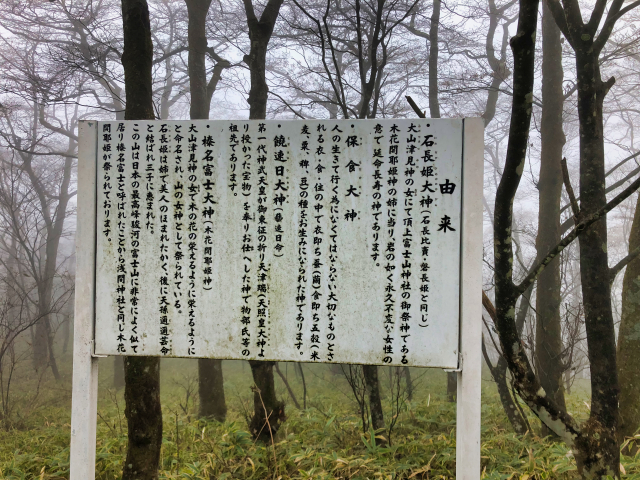 由来
・石長姫大神(石長比賣、磐長姫と同じ)
大山津見神の女にて頂上富士山神社の御祭神である
木花開耶姫神の姉に当り、岩の如く永久不変な女性の
意で延命長寿の神であります。
・保食大神
人の生きて行く為になくてはならない大切なものとさ
れる衣・食・住の中で衣即ち蚕(繭)食即ち五穀(米
麦、粟、稗、豆)の種をお生みになられた神であります。
・饒速日大神(饒速日命)
第一代神武天皇が御東征の折り天津璽(天照皇大神よ
り授かった宝物)を奉りお仕へした神で物部氏等の
祖先であります。
・榛名富士大神(木花開耶姫神)
大山津見神の女で木の花の栄えるように栄えるように
と命名され、山の女神として祭られている。
石長姫は姉で美人のほまれたかく、後に天孫邇邇芸命
とむすばれ三子に恵まれた。
この山は日本の最高峰駿河の富士山に非常によく似て
居り榛名富士と呼ばれたことから浅間神社と同じ木花
開耶姫が祭られております。